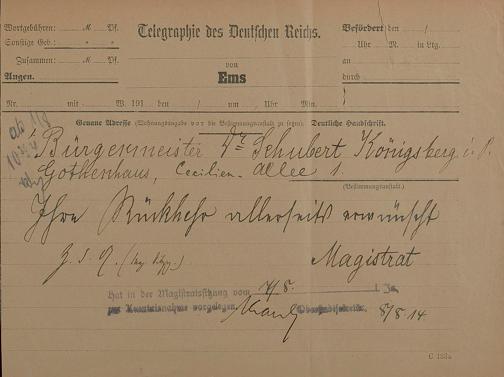 Wortgebühren: M Pf.
Sonstige Geb.: " "
Zusammen: M Pf.
Angen.
Telegraphie des Deutschen Reichs.
von
Ems
Befördert den /
Uhr M. in Ltg.
an
durch
Nr. mit W. 191 den / um Uhr Min.
Genaue Adresse (Wohnungsangabe vor die Bestimmungsanstalt zu setzen). Deutliche Handschrift.
Bürgermeister Dr. Schubert Königsberg i. P.
Gothenhaus, Cecilien-allee 1.
(Bestimmungsanstalt.)
Ihre Rückkehr allerseits erwünscht
Magistrat
Hat in der Magistratssitzung vom 7/8. 
zur Kenntnisnahme vorgelegen.
8/8 14
C 188a